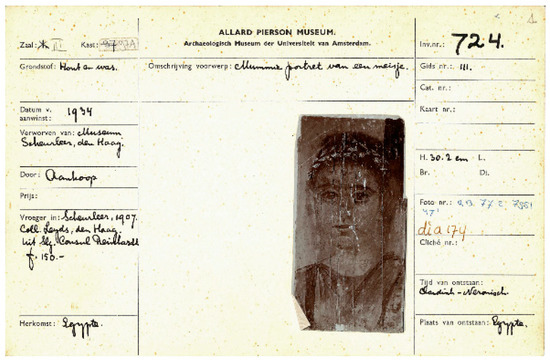 ALLARD PIERSON MUSEUM.
Archaeologisch Museum der Universiteit van Amsterdam.
Zaal: III Kast:
Inv.nr.: 724.
Grondstof: Hout en was.
Omschrijving voorwerp: Mummie portret van een meisje.
Gids nr.: 111.
Cat. nr.:
Datum v. aanwinst: 1934
Kaart nr.:
Verworven van: Museum
Scheurleer, den Haag.
H. 30.2 cm L.
Br. Di.
Door: Aankoop
Prijs:
Foto nr.:
dia 179
Cliché nr.:
Vroeger in: Scheurleer, 1907.
Coll. Leyds, den Haag.
Uit Slg. Consul Reinhardt
f. 150.-
Tijd van ontstaan:
Claudisch-Neronisch.
Herkomst: Egypte.
Plaats van ontstaan: Egypte.